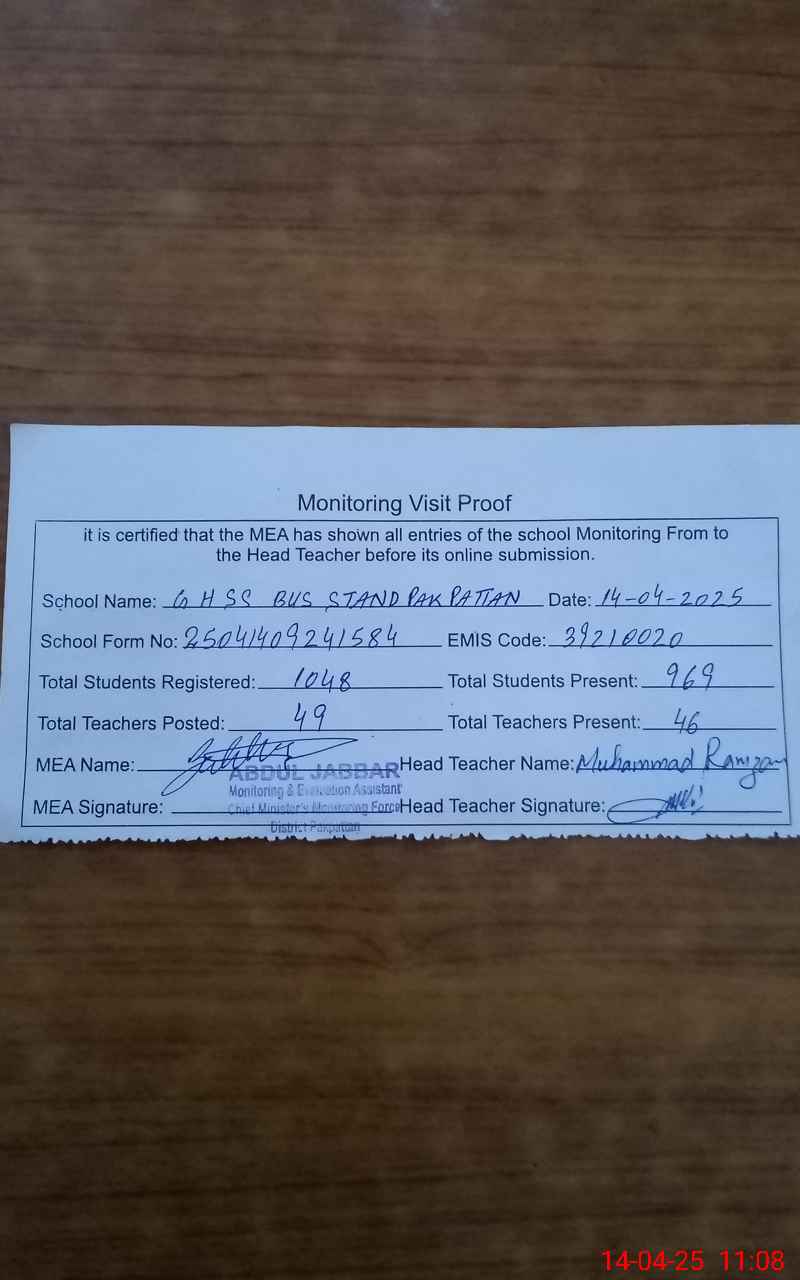 Monitoring Visit Proof
it is certified that the MEA has shown all entries of the school Monitoring From to
the Head Teacher before its online submission.
School Name: GHSS BUS STAND PAKPATTAN Date: 14-04-2025
School Form No: 25041409241584 EMIS Code: 39210020
Total Students Registered: 1048 Total Students Present: 969
Total Teachers Posted: 49 Total Teachers Present: 46
MEA Name: ABDUL JABBAR Head Teacher Name: Muhammad Ramzan
Monitoring & Evaluation Assistant
MEA Signature: Chief Minister's Monitoring Force Head Teacher Signature:
District Pakpattan
14-04-25 11:08